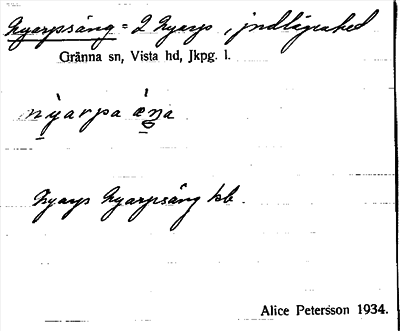 Nyarpsäng = 2 Nyarp, jndlägenhed
Gränna sn, Vista hd, Jkpg. l.
nỳarpa ǽŋa
Nyarps Nyarpsäng kb.
Alice Petersson 1934.